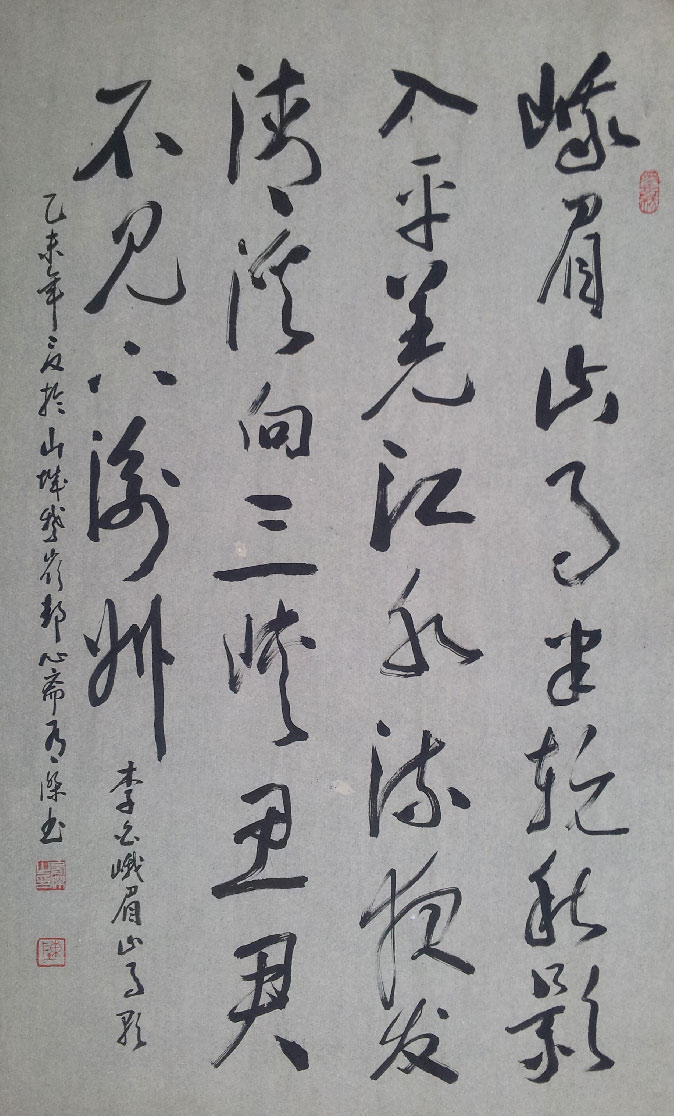 峨眉山月半轮秋影
入平羌江水流夜发
清溪向三峡思君
不见下渝州
李白峨眉山月歌
乙未年夏於山城鹅岭静心斋书